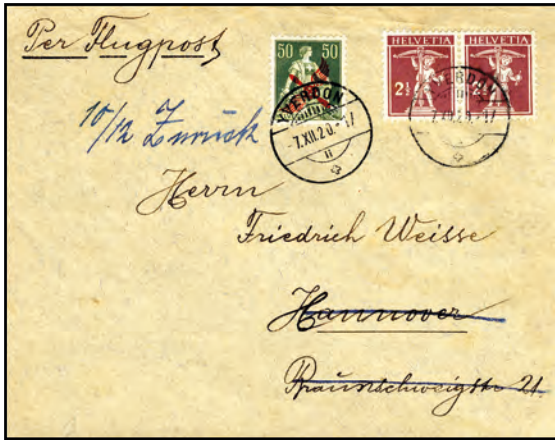 Per Flugpost
50 50
HELVETIA HELVETIA
2½ 2½
YVERDON
-7.XII.20.-17
YVERDON
10/12 Zurück
Herrn
Friedrich Weisse
Hannover
Braunschweigstr 21